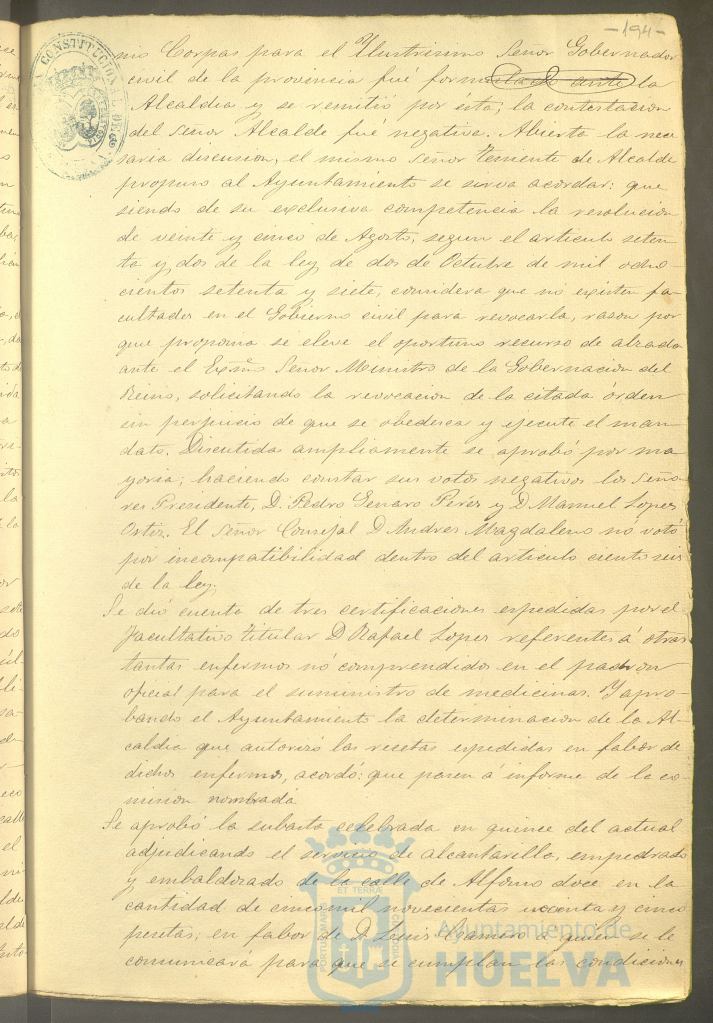 -194-
CONSTITUCIONAL DE
mo Corpas para el Ilustrisimo Señor Gobernador
civil de la provincia fué formulado ante la
Alcaldia y se remitió por ésta; la contestacion
del Señor Alcalde fué negativa. Abierta la nece
saria discusion, el mismo Señor teniente de Alcalde
propuso al Ayuntamiento se sirva acordar: que
siendo de su exclusiva competencia la resolucion
de veinte y cinco de Agosto, segun el articulo seten
ta y dos de la ley de dos de Octubre de mil ocho-
cientos setenta y siete, considera que no existen fa-
cultades en el Gobierno civil para revocarla, rason por
que proponia se eleve el oportuno recurso de alzada
ante el Exmo Señor Ministro de la Gobernacion del
Reino, solicitando la revocacion de la citada órden
sin perjuicio de que se obedesca y ejecute el man-
dato. Discutida ampliamente se aprobó por ma
yoria; haciendo constar sus votos negativos los Seño
res Presidente, D. Pedro Genaro Perez y D. Manuel Lopez
Ortiz. El Señor Consejal D Andres Magdaleno nó votó
por incompatibilidad dentro del articulo ciento seis
de la ley.
Se dió cuenta de tres certificaciones espedidas por el
facultativo titular D Rafael Lopez referentes á otras
tantas enfermos nó comprendidos en el padron
oficial para el suministro de medicinas. Y apro-
bando el Ayuntamiento la determinacion de la Al-
caldia que autorizó las resetas espedidas en fabor de
dichos enfermos, acordó: que pasen á informe de la co-
mision nombrada
Se aprobó la subasta celebrada en quince del actual
adjudicando el servicio de alcantarilla, empedrado
y embaldosado de la calle de Alfonso doce en la
cantidad de cinco mil novecientas y cinco
pesetas; en fabor de D. Luis á quien se le
comunicara para que se cumplan las condiciones
Ayuntamiento de
HUELVA